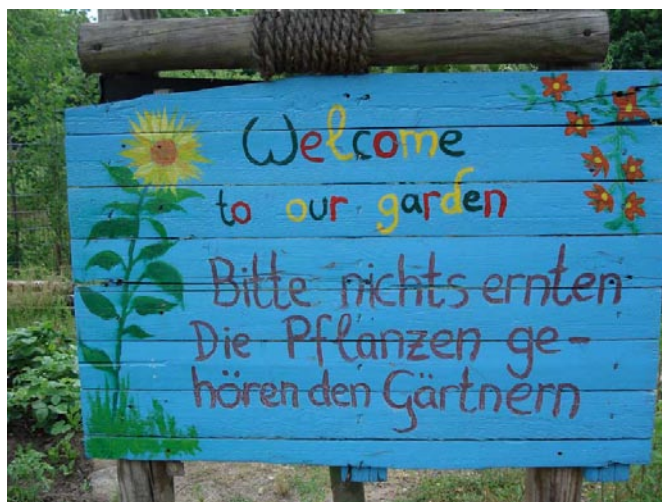 Welcome
to our garden
Bitte nichts ernten
Die Pflanzen ge-
hören den Gärtnern